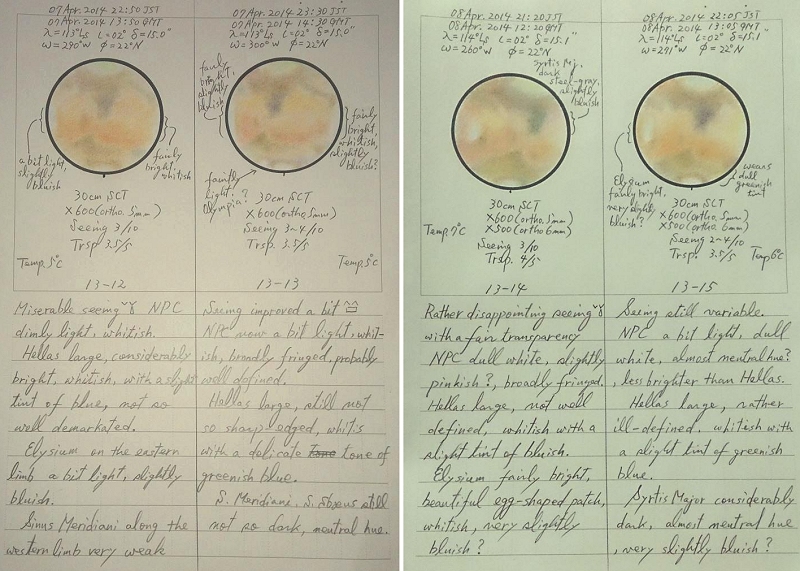 07 Apr. 2014 22:50 JST
07 Apr. 2014 13:50 GMT
λ=113°Ls ι=02° δ=15.0"
ω=290°W φ=22°N
a bit light, slightly bluish
fairly bright, whitish
30cm SCT
×600 (ortho. 5mm)
Seeing 3/10
Trsp. 3.5/5
Temp. 5°C
13-12
Miserable seeing NPC
dimly light, whitish.
Hellas large, considerably
bright, whitish, with a slight
tint of blue, not so
well demarkated.
Elysium on the eastern
limb a bit light, slightly
bluish.
Sinus Meridiani along the
western limb very weak
07 Apr. 2014 23:30 JST
07 Apr. 2014 14:30 GMT
λ=113°Ls ι=02° δ=15.0"
ω=300°W φ=22°N
fairly bright, slightly bluish
fairly bright, whitish, slightly bluish?
faintly light. Olympia?
30cm SCT
×600 (ortho. 5mm)
Seeing 3~4/10
Trsp. 3.5/5
Temp. 5°C
13-13
Seeing improved a bit
NPC now a bit light, whit-
ish, broadly fringed, probably
well defined.
Hellas large, still not
so sharp-edged, whitis
with a delicate tone of
greenish blue.
S. Meridiani, S. Sbaeus still
not so dark, neutral hue.
08 Apr. 2014 21:20 JST
08 Apr. 2014 12:20 GMT
λ=114°Ls ι=02° δ=15.1"
ω=260°W φ=22°N
Syrtis Mj. dark steel-gray, slightly bluish
30cm SCT
×600 (ortho. 5mm)
×500 (ortho 6mm)
Temp. 7°C
Seeing 3/10
Trsp. 4/5
13-14
Rather disappointing seeing
with a fair transparency
NPC dull white, slightly
pinkish?, broadly fringed.
Hellas large, not well
defined, whitish with a
slight tint of bluish.
Elysium fairly bright,
beautiful egg-shaped patch,
whitish, very slightly
bluish?
08 Apr. 2014 22:05 JST
08 Apr. 2014 13:05 GMT
λ=114°Ls ι=02° δ=15.1"
ω=271°W φ=22°N
Elysium fairly bright. very slightly bluish?
wears dull greenish tint
30cm SCT
×600 (ortho. 5mm)
×500 (ortho 6mm)
Seeing 2~4/10
Trsp. 3.5/5
Temp 6°C
13-15
Seeing still variable.
NPC a bit light, dull
white, almost neutral hue?
, less brighter than Hellas.
Hellas large, rather
ill-defined, whitish with
a slight tint of greenish
blue.
Syrtis Major considerably
dark, almost neutral hue
, very slightly bluish?